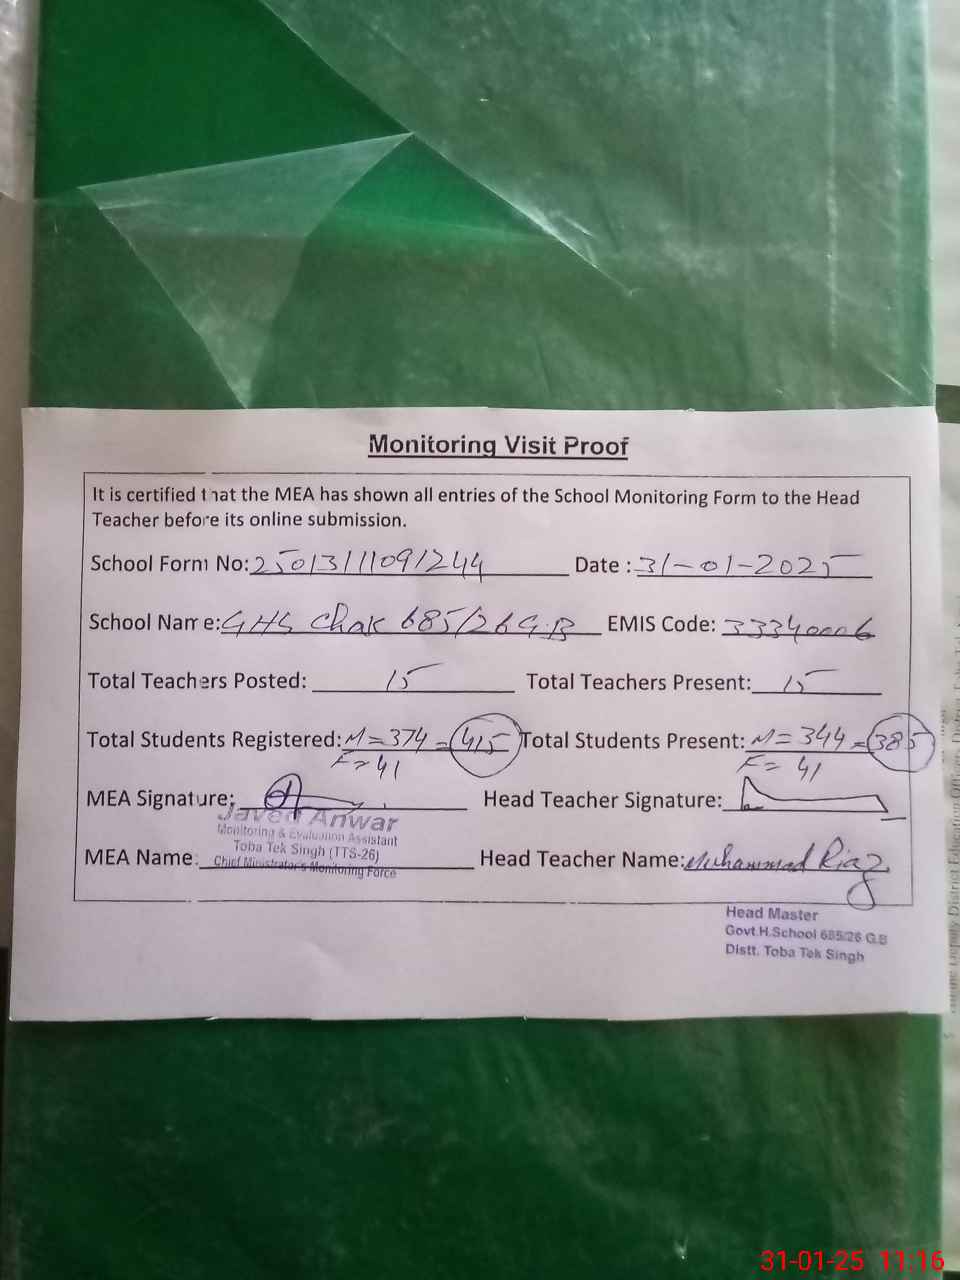 Monitoring Visit Proof
It is certified that the MEA has shown all entries of the School Monitoring Form to the Head
Teacher before its online submission.
School Form No: 25013111091244 Date : 31-01-2025
School Name: GHS Chak 685/26 G.B EMIS Code: 33340006
Total Teachers Posted: 15 Total Teachers Present: 15
Total Students Registered: M = 374 = 415 Total Students Present: M = 344 = 385
F = 41 F = 41
MEA Signature: Head Teacher Signature:
Javed Anwar
Monitoring & Evaluation Assistant
Toba Tek Singh (TTS-26)
Chief Minister's Monitoring Force
MEA Name: Head Teacher Name: Muhammad Riaz
Head Master
Govt.H.School 685/26 G.B
Distt. Toba Tek Singh
31-01-25 11:16